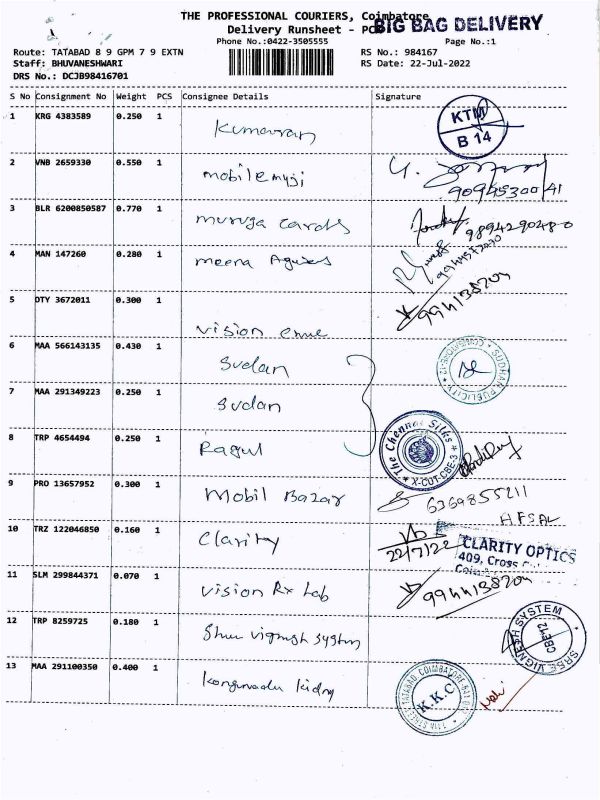 THE PROFESSIONAL COURIERS, Coimbatore
Delivery Runsheet - POD
BIG BAG DELIVERY
Phone No.:0422-3505555
Page No.:1
Route: TATABAD 8 9 GPM 7 9 EXTN
RS No.: 984167
Staff: BHUVANESHWARI
RS Date: 22-Jul-2022
DRS No.: DCJB98416701
S No Consignment No Weight PCS Consignee Details Signature
1 KRG 4383589 0.250 1 Kumaran KTM B 14
2 VNB 2659330 0.550 1 mobile muji
3 BLR 6200850587 0.770 1 muruga Cards 9894290480
4 MAN 147260 0.280 1 meena
5 DTY 3672011 0.300 1 vision 9944138204
6 MAA 566143135 0.430 1 Sudan SUDHAN PUBLICITY
7 MAA 291349223 0.250 1 Sudan
8 TRP 4654494 0.250 1 Ragul The Chennai Silks X-CUT-CBE-3
9 PRO 13657952 0.300 1 Mobil Bazar 6369855211
AFSAL
10 TRZ 122046850 0.160 1 Clarity 22/7/22 CLARITY OPTICS
409, Cross
11 SLM 299844371 0.070 1 vision Rx Lab 9944138204
12 TRP 8259725 0.180 1 Shree vignesh system SREE VIGNESH SYSTEM CBE-12
13 MAA 291100350 0.400 1 kongunadu kidny K.K.C